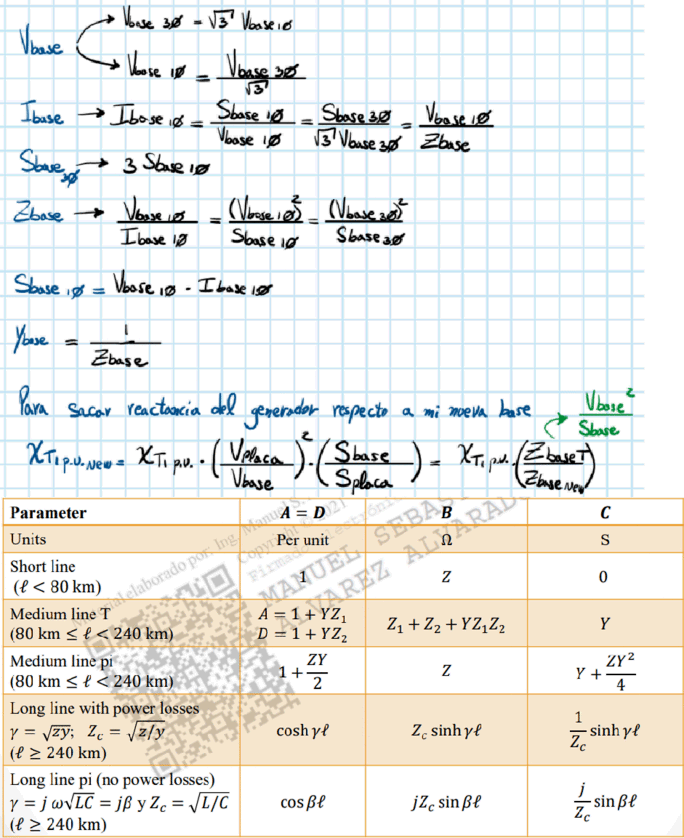 Vbase → Vbase 3Ø = √3 Vbase 1Ø
→ Vbase 1Ø = Vbase 3Ø / √3
Ibase → Ibase 1Ø = Sbase 1Ø / Vbase 1Ø = Sbase 3Ø / √3 Vbase 3Ø = Vbase 1Ø / Zbase
Sbase 3Ø → 3 Sbase 1Ø
Zbase → Vbase 1Ø / Ibase 1Ø = (Vbase 1Ø)² / Sbase 1Ø = (Vbase 3Ø)² / Sbase 3Ø
Sbase 1Ø = Vbase 1Ø · Ibase 1Ø
Ybase = 1 / Zbase
Para sacar reactancia del generador respecto a mi nueva base → Vbase² / Sbase
X T1 p.u. New = X T1 p.u. · (Vplaca / Vbase)² · (Sbase / Splaca) = X T1 p.u. · (Zbase T / Zbase New)
Parameter A = D B C
Units Per unit Ω S
Short line
(ℓ < 80 km) 1 Z 0
Medium line T A = 1 + YZ₁
(80 km ≤ ℓ < 240 km) D = 1 + YZ₂ Z₁ + Z₂ + YZ₁Z₂ Y
Medium line pi
(80 km ≤ ℓ < 240 km) 1 + ZY/2 Z Y + ZY²/4
Long line with power losses
γ = √zy; Z_c = √z/y cosh γℓ Z_c sinh γℓ 1/Z_c sinh γℓ
(ℓ ≥ 240 km)
Long line pi (no power losses)
γ = j ω√LC = jβ y Z_c = √L/C cos βℓ jZ_c sin βℓ j/Z_c sin βℓ
(ℓ ≥ 240 km)
elaborado por: Ing. Manuel S.
Copyright © 2021
MANUEL SEBAS
ALVAREZ ALVARAD